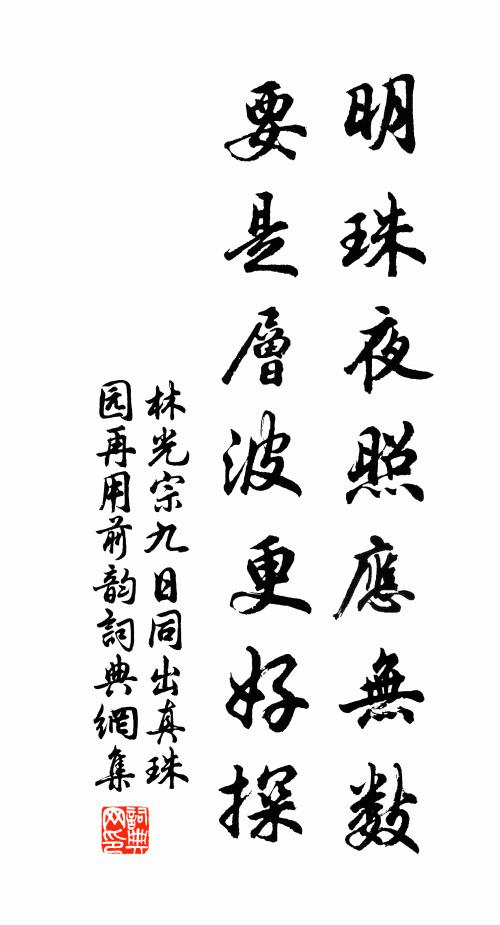 明珠夜照應無數
要是層波更好探
林光宗九日同出真珠
园再用前韵詞典網集
詞典
网印